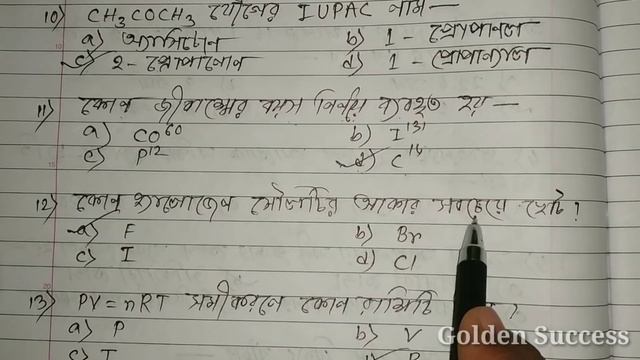 10) CH₃COCH₃ যৌগের IUPAC নাম—
a) অ্যাসিটোন b) 1 - প্রোপানল
c) 2 - প্রোপানোন d) 1 - প্রোপান্যাল
11) কোন জীবাশ্মের বয়স নির্ণয়ে ব্যবহৃত হয় —
a) CO⁶⁰ b) I¹³¹
c) P¹² d) C¹⁴
12) কোন্ হ্যালোজেন মৌলটির আকার সবচেয়ে ছোট ?
a) F b) Br
c) I d) Cl
13) PV = nRT সমীকরণে কোন রাশিটি ?
a) P b) V
c) T
Golden Success